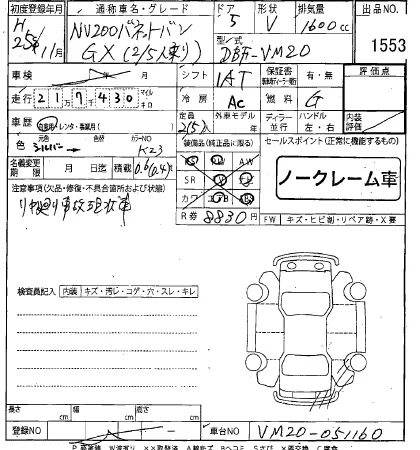 初度登録年月 通称車名・グレード ドア 形状 排気量 出品NO.
H 25年 11月 NV200バネットバン 5 V 1600cc 1553
GX (2/5人乗り) 型/式 DBF-VM20
車検 年 月 シフト IAT 保証書 有・無 評価点
走行 217430 マイル キロ 冷房 AC 燃料 G
車歴 自家用・レンタ・事業用( ) 定員 2(5)人 外車モデル 年 ディーラー 並行 ハンドル 左・右 内装評価
色 元色 シルバー カラーNO K23 装備品(純正品に限る) セールスポイント(正常に機能するもの)
名義変更期限 月 日迄 積載 0.6(0.4)t AW
SR
カワ
ノークレーム車
注意事項(欠品・修復・不具合箇所および状態)
R券 8830円 FW キズ・ヒビ割・リペア跡・X要
検査員記入 内装 キズ・汚ジ・コゲ・穴・スレ・キレ
長さ cm 幅 cm 高さ cm
登録NO 車台NO VM20-051160